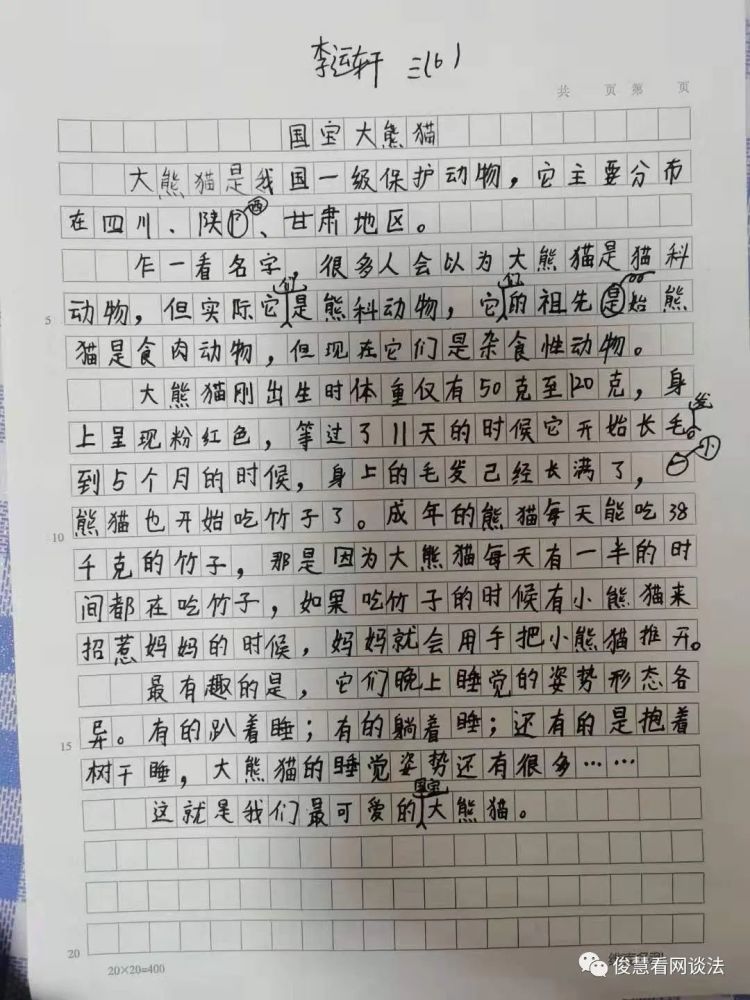 李运轩 三(6)
共 页 第 页
国宝大熊猫
大熊猫是我国一级保护动物，它主要分布
在四川、陕西、甘肃地区。
乍一看名字，很多人会以为大熊猫是猫科
5 动物，但实际它们是熊科动物，它们的祖先是始熊
猫是食肉动物，但现在它们是杂食性动物。
大熊猫刚出生时体重仅有50克至120克，身
上呈现粉红色，等过了11天的时候它开始长毛发。
到5个月的时候，身上的毛发已经长满了，小
10 熊猫也开始吃竹子了。成年的熊猫每天能吃38
千克的竹子，那是因为大熊猫每天有一半的时
间都在吃竹子，如果吃竹子的时候有小熊猫来
招惹妈妈的时候，妈妈就会用手把小熊猫推开。
最有趣的是，它们晚上睡觉的姿势形态各
15 异。有的趴着睡；有的躺着睡；还有的是抱着
树干睡，大熊猫的睡觉姿势还有很多……
这就是我们最可爱的国宝大熊猫。
20
20×20=400
俊慧看网谈法